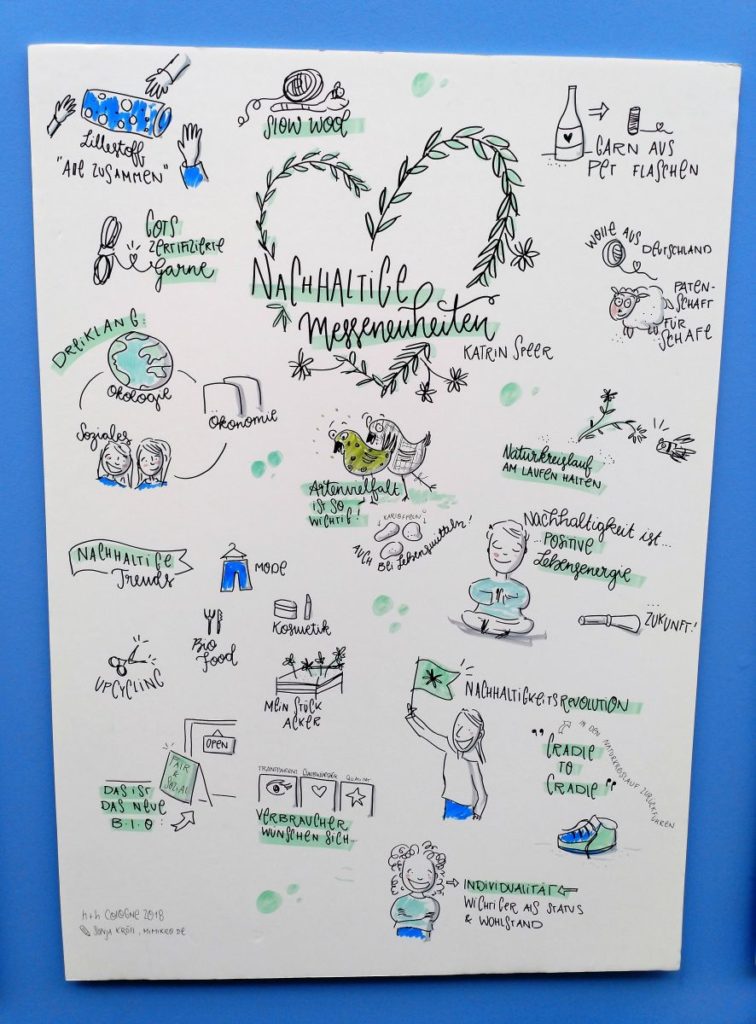 Lillestoff
"Alle zusammen"
Slow Wool
Garn aus
PET Flaschen
GOTS
zertifizierte
Garne
Wolle aus Deutschland
Patenschaft
für
Schafe
Nachhaltige
Messeneuheiten
Katrin Speer
Dreiklang:
Ökologie
Ökonomie
Soziales
Artenvielfalt
ist so
wichtig!
Kartoffeln
auch bei Lebensmitteln!
Naturkreislauf
am Laufen halten
Nachhaltigkeit ist...
positive
Lebensenergie
Zukunft!
Nachhaltige
Trends
Mode
Bio
Food
Kosmetik
Upcycling
Mein Stück
Acker
Nachhaltigkeitsrevolution
"Cradle
to
Cradle"
in den Naturkreislauf zurückführen
OPEN
Fair
&
Sozial
Das ist
das neue
B·I·O:
Transparenz
Qualität
Verbraucher
wünschen sich...
Individualität
wichtiger als Status
& Wohlstand
h+h Cologne 2018
mimikro.de